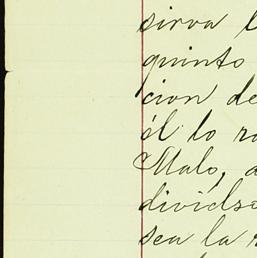 sirva l
quinto
cion de
él lo r
Malo, a
dividse
sea la r